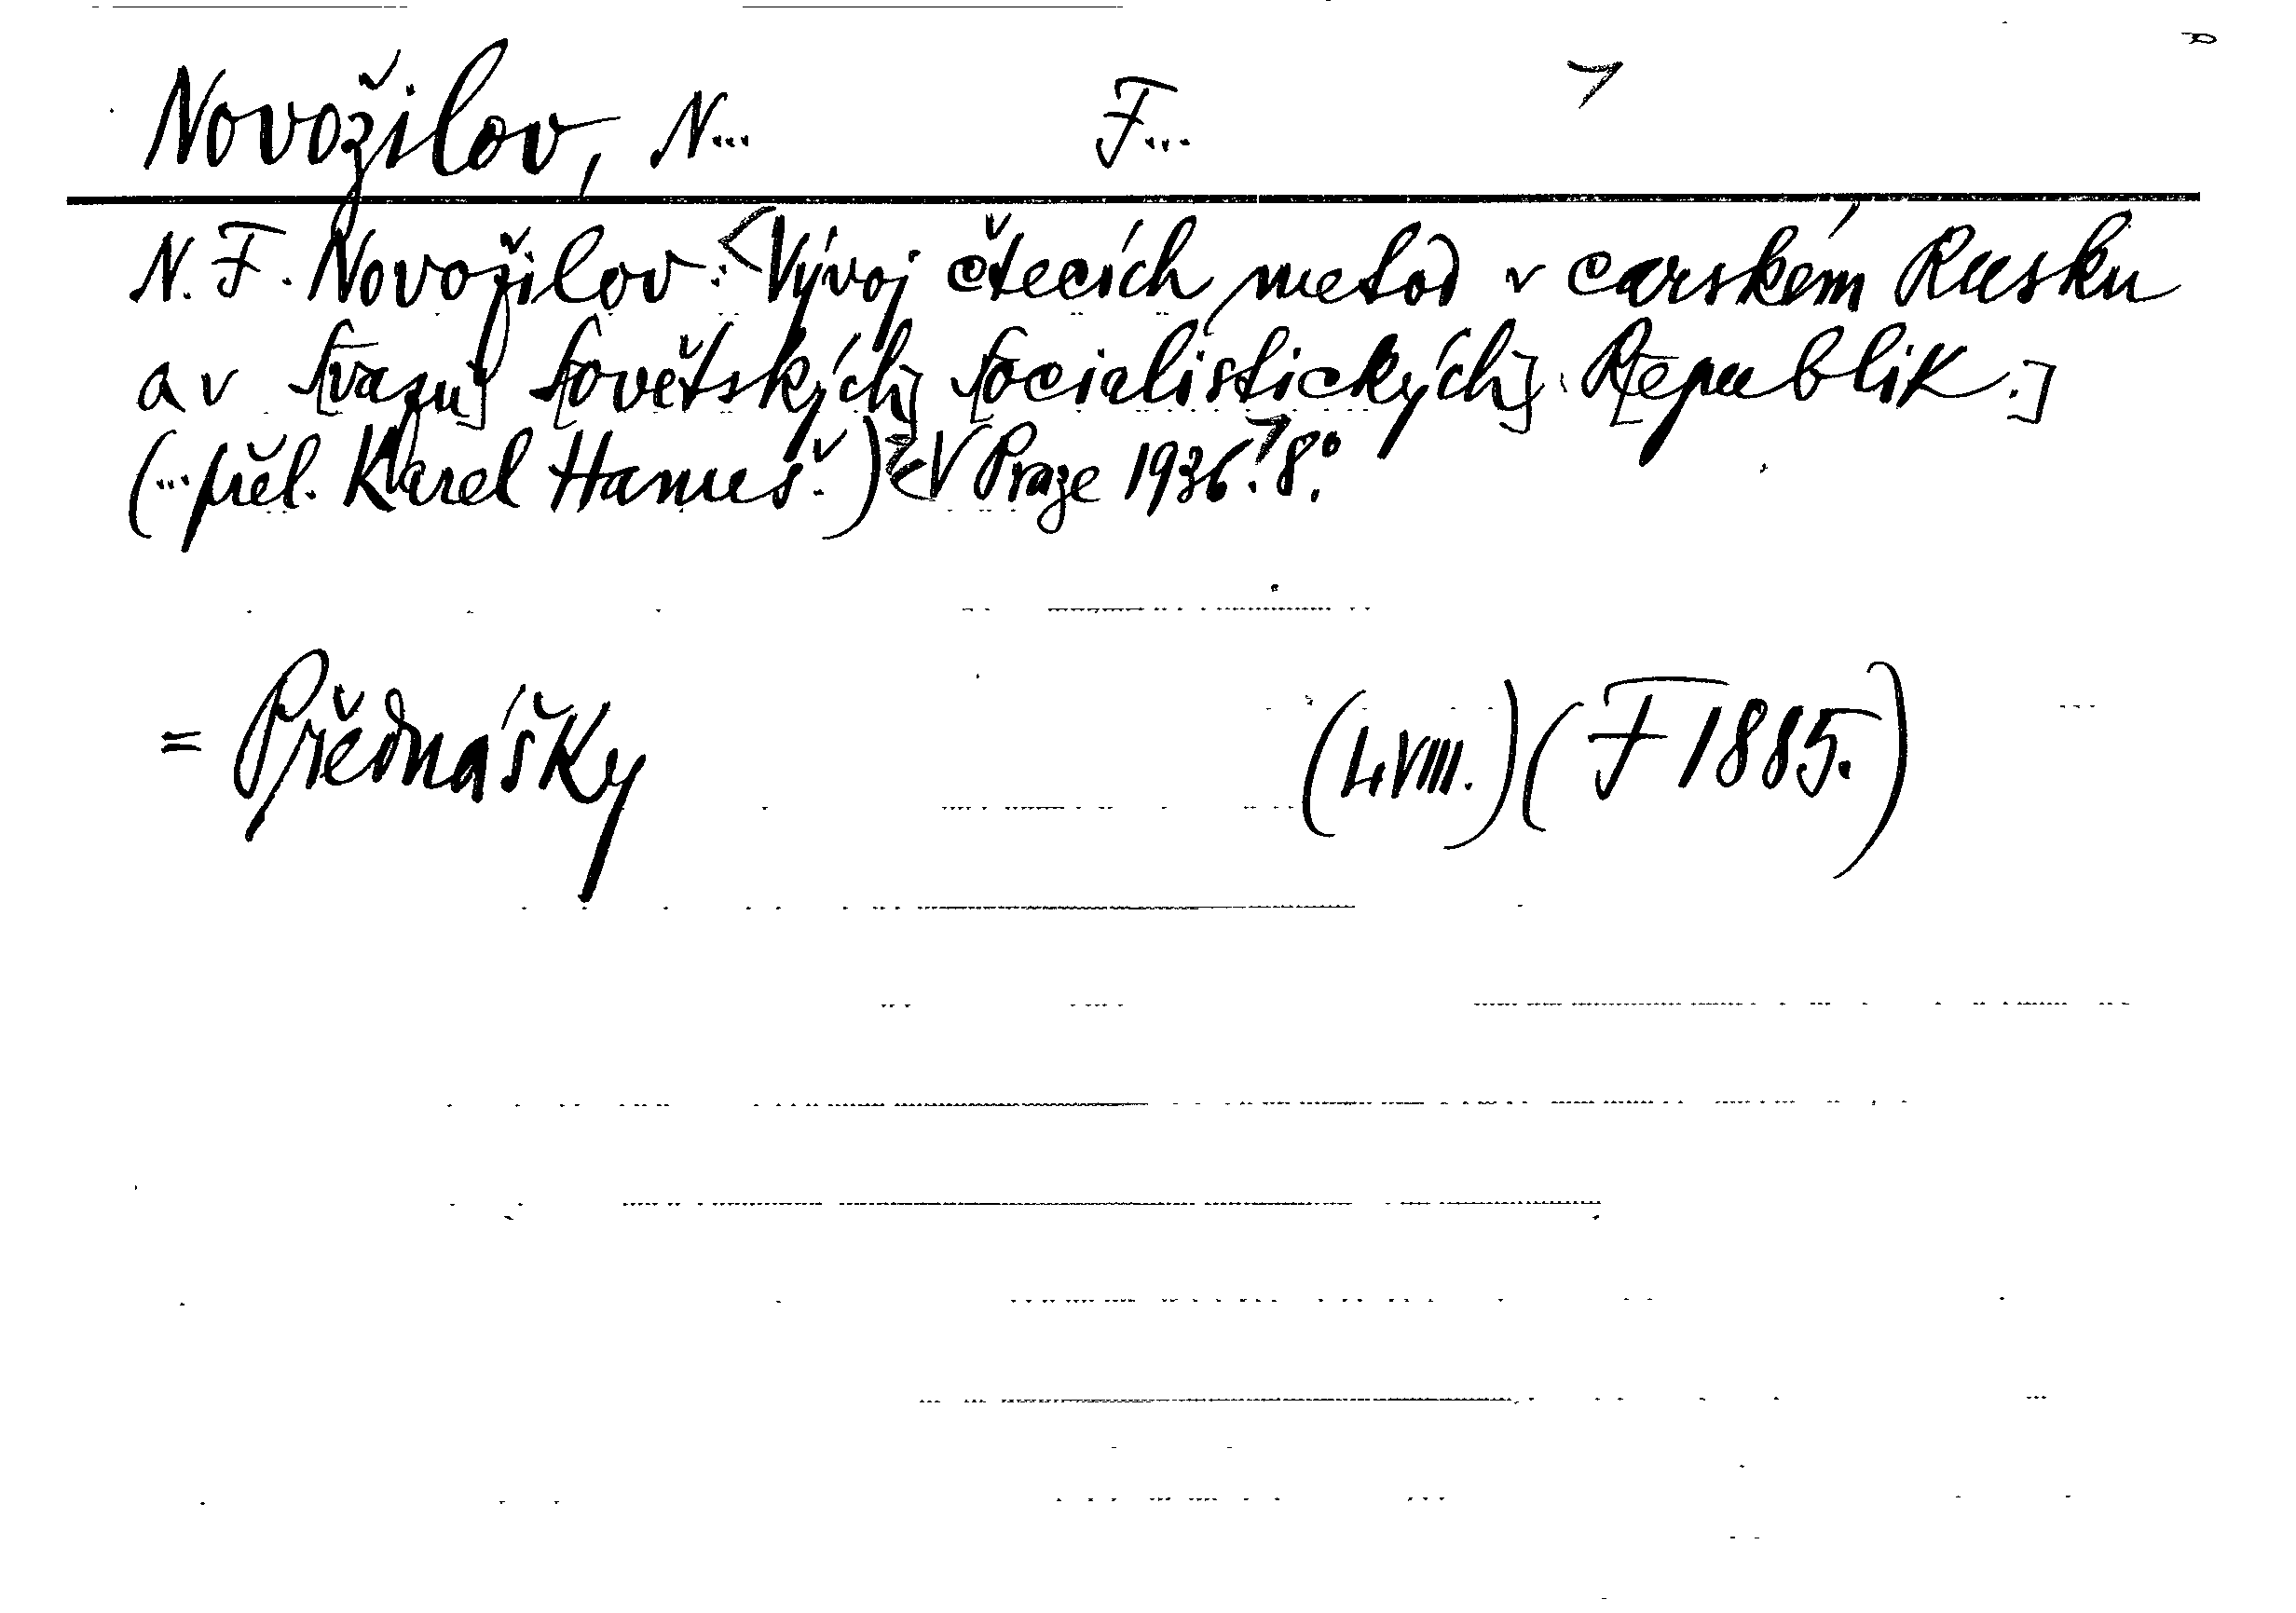 Novožilov, N... F...
N. F. Novožilov: Vývoj čtecích metod v carském Rusku
a v S[vazu] S[ovětských] S[ocialistických] R[epublik.]
(...přel. Karel Hanuš.) V Praze 1936. 8°.
= Přednášky (LVIII.) (F 1885.)